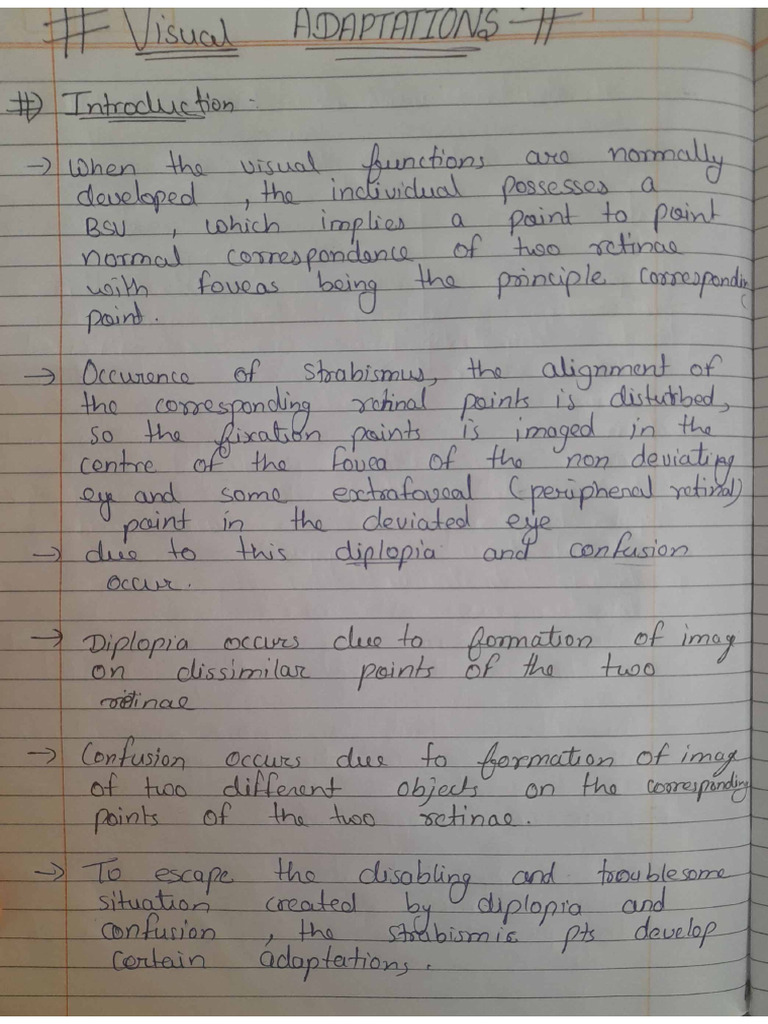 # Visual ADAPTATIONS #
#) Introduction :
→ When the visual functions are normally
developed , the individual possesses a
BSV , which implies a point to point
normal correspondence of two retinae
with foveas being the principle correspondin
point.
→ Occurence of strabismus, the alignment of
the corresponding retinal points is disturbed,
so the fixation points is imaged in the
centre of the fovea of the non deviating
eye and some extrafoveal (peripheral retinal)
point in the deviated eye
→ due to this diplopia and confusion
occur.
→ Diplopia occurs due to formation of imag
on dissimilar points of the two
retinae
→ Confusion occurs due to formation of imag
of two different objects on the corresponding
points of the two retinae.
→ To escape the disabling and troublesome
situation created by diplopia and
confusion , the strabismic pts develop
certain adaptations.